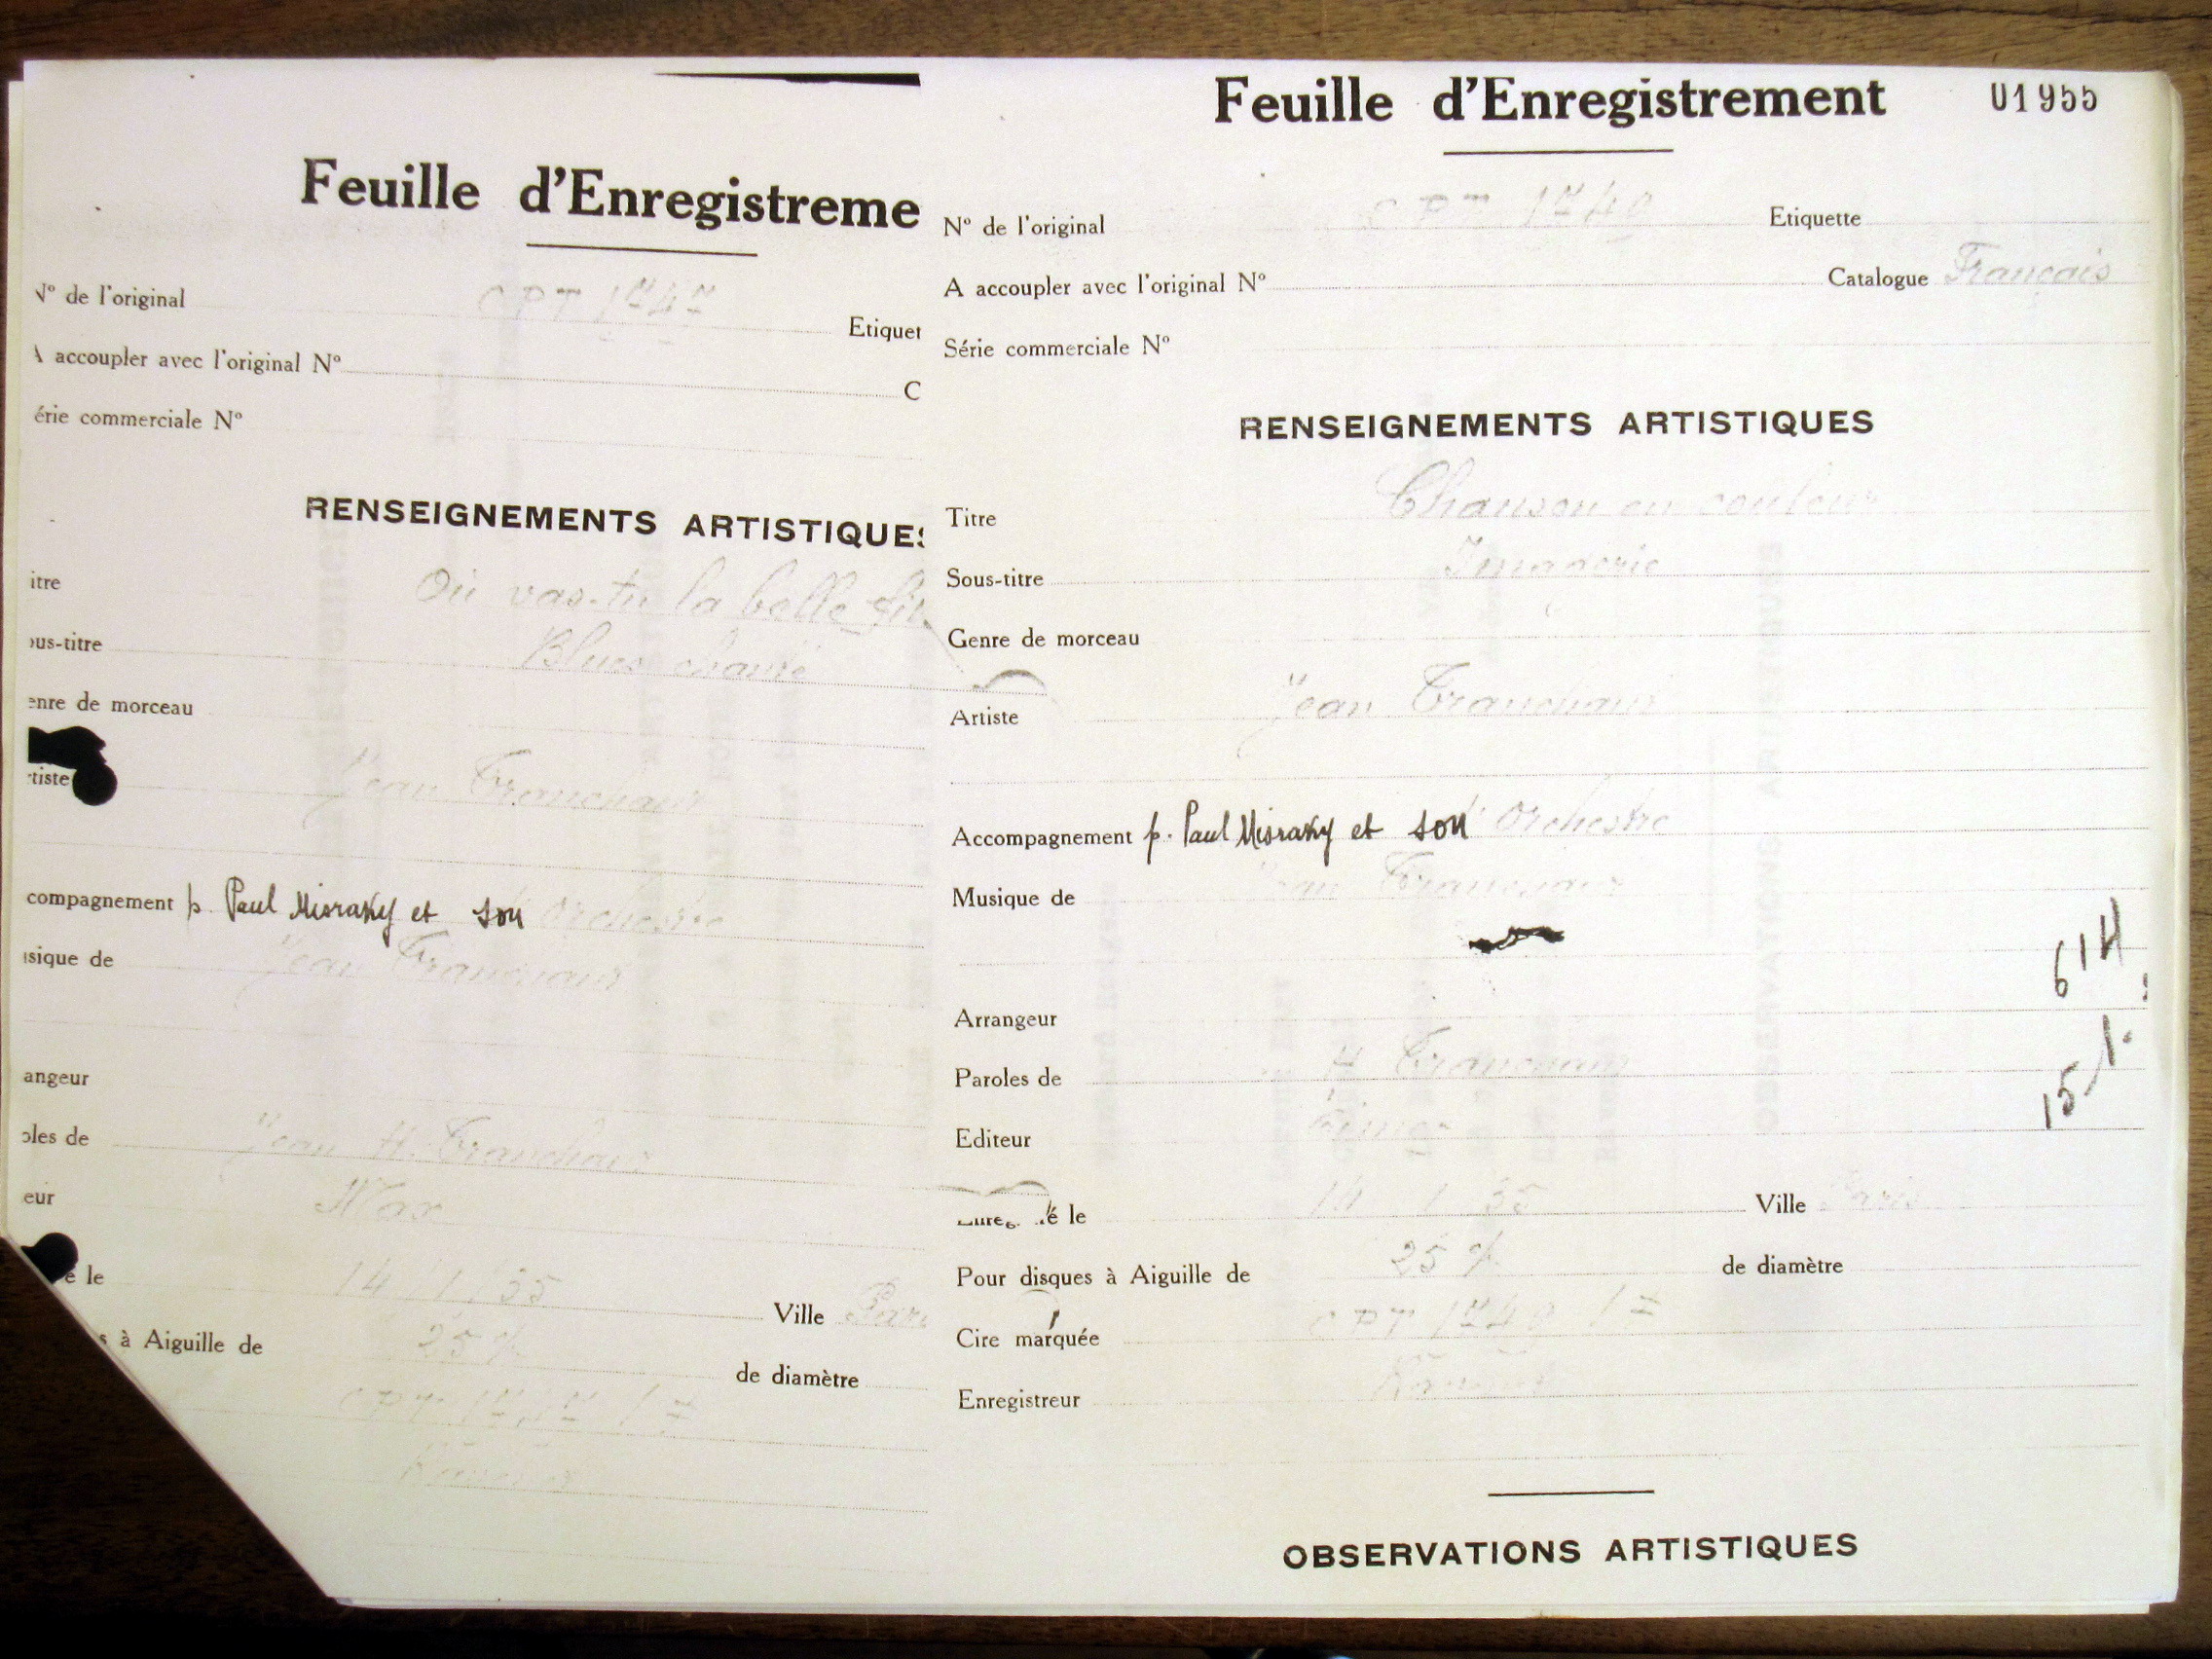 Feuille d'Enregistreme
N° de l'original CPT 1747
Etiquet
A accoupler avec l'original N°
C
érie commerciale N°
RENSEIGNEMENTS ARTISTIQUES
itre Où vas-tu la belle fil
ous-titre Blues chanté
enre de morceau
rtiste Jean Tranchant
compagnement p. Paul Misraky et son Orchestre
usique de Jean Tranchant
angeur
oles de Jean H. Tranchant
eur
é le 14 / 1 / 35
Ville Pari
s à Aiguille de 25
de diamètre
CPT 1747 / 1
Feuille d'Enregistrement 01955
N° de l'original CPT 1740 Etiquette
A accoupler avec l'original N° Catalogue Français
Série commerciale N°
RENSEIGNEMENTS ARTISTIQUES
Titre Chanson en couleur
Sous-titre Imagerie
Genre de morceau
Artiste Jean Tranchant
Accompagnement p. Paul Misraky et son Orchestre
Musique de Jean Tranchant
614
Arrangeur
Paroles de H Tranchant
15/1.
Editeur
Enreg é le 14 1 35 Ville Paris
Pour disques à Aiguille de 25 de diamètre
Cire marquée CPT 1740 / 1
Enregistreur
OBSERVATIONS ARTISTIQUES